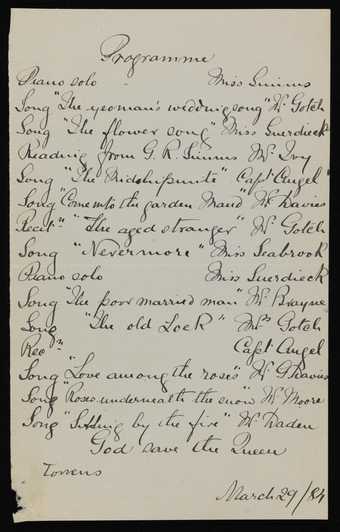 Programme
Piano solo Miss Simms
Song "The yeoman's wedding song" Mr Gotch
Song "The flower song" Miss Suerdieck
Reading from G. R. Simms Mr Ivy
Song "The Midshipmite" Capt Angel
Song "Come into the garden Maud" Mr Davies
Recitn "The aged stranger" Mr Gotch
Song "Nevermore" Miss Seabrook
Piano solo Miss Suerdieck
Song "The poor married man" Mr Brayne
Song "The old Lock" Mrs Gotch
Recn Capt Angel
Song "Love among the roses" Mr G Davies
Song "Roses underneath the snow" Mr Moore
Song "Sitting by the fire" Mr Kaden
God save the Queen
Torrens
March 29/84